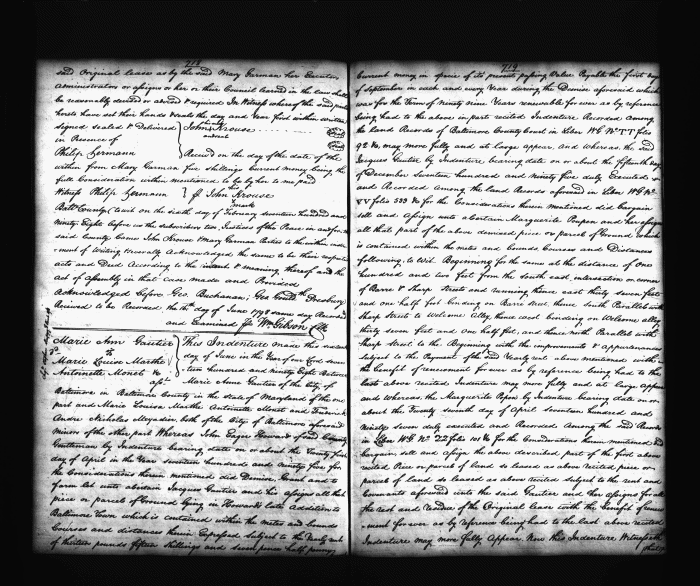 718
said Original lease as by the said Mary Garman her Executors
Administrators or assigns or her or their Council learned in the law shall
be reasonably devised or advised & required In Witness whereof the said parties
hereto have set their hands & seals the day and Year first within written
signed sealed & Delivered
in Presence of
Philip Hermann
John Krouse
mark
Received on the day of the date of the
within from Mary Garman five shillings Current money being the
full Consideration within mentioned to be by her to me paid
Witness Philip Hermann
John Krouse
mark
Balt County to wit on the sixth day of February seventeen hundred and
Ninety Eight before us the subscribers two Justices of the Peace in and for the
said County Came John Krouse & Mary Garman Parties to the within instru
-ment of Writing & severally Acknowledged the same to be their respective
acts and Deed According to the intent & meaning thereof and the
act of assembly in that Case made and Provided
Acknowledged before Geo. Buchanan, Geo Presbury
Received to be Recorded the day of June 1798 same day Recorded
and Examined Wm Gibson Clk
Marie Ann Gautier
to
Marie Louise Marthe
Antoinette Monet &c
This Indenture made this
day of June in the Year of our Lord seven
-teen hundred and ninety Eight Between
Marie Anne Gautier of the City of
Baltimore in Baltimore County in the state of Maryland of the one
part and Marie Louisa Marthe Antoinette Monet and Frederick
Andre Nicholas of the City of Baltimore aforesaid
Minor of the other part Whereas John Eager Howard of said County
Gentleman by Indenture bearing date on or about the Twenty first
day of April in the Year seventeen hundred and ninety five for
the Considerations therein mentioned did Demise Grant and to
farm let unto a certain Jacques Gautier and his assigns all that
piece or parcel of Ground lying in Howards late Addition to
Baltimore Town which is contained within the metes and bounds
Courses and distances therein Expressed Subject to the Yearly rent
of thirteen pounds fifteen shillings and seven pence half penny
719
Current money in specie of its present passing Value Payable the first day
of September in each and every Year during the Demise aforesaid which
was for the Term of Ninety nine Years renewable for ever as by reference
being had to the above in part recited Indenture Recorded among
the land Records of Baltimore County Court in Liber W G No TT folio
98 &c may more fully and at large appear, and Whereas the said
Jacques Gautier by Indenture bearing date on or about the fifteenth day
of December seventeen hundred and ninety five duly Executed
and Recorded Among the land Records aforesaid in Liber W G No
VV folio 533 &c for the Considerations therein mentioned did bargain
sell and Assign unto a Certain Marguerite Papen and her assigns
all that part of the above demised piece or parcel of Ground which
is contained within the metes and bounds Courses and Distances
following to Wit. Beginning for the same at the distance of One
hundred and two feet from the South east intersection or corner
of Barre & Sharp Street and running thence east thirty seven feet
and one half foot binding on Barre street thence South Parallel with
Sharp Street to Welcome Alley thence east binding on Welcome alley
thirty seven feet and one half foot and thence north Parallel with
Sharp Street to the Beginning with the improvements & appurtenances
Subject to the Payment of the said Yearly rent above mentioned with
the benefit of renewment for ever as by reference being had to the
last above recited Indenture may more fully and at large Appear
and whereas the Marguerite Papen by Indenture bearing date on or
about the Twenty seventh day of April seventeen hundred and
Ninety seven duly executed and Recorded Among the said Records
in Liber W G No ZZ folio 101 &c for the Considerations herein mentioned did
bargain sell and assign the above described part of the first above
recited Piece or parcel of land so leased as above recited piece or
parcel of land so leased as above recited subject to the rent and
Covenants aforesaid unto the said Gautier and her assigns for all
the rest and residue of the Original lease with the benefit of renew
-ment for ever as by reference being had to the last above recited
Indenture may more fully Appear. Now this Indenture Witnesseth
that